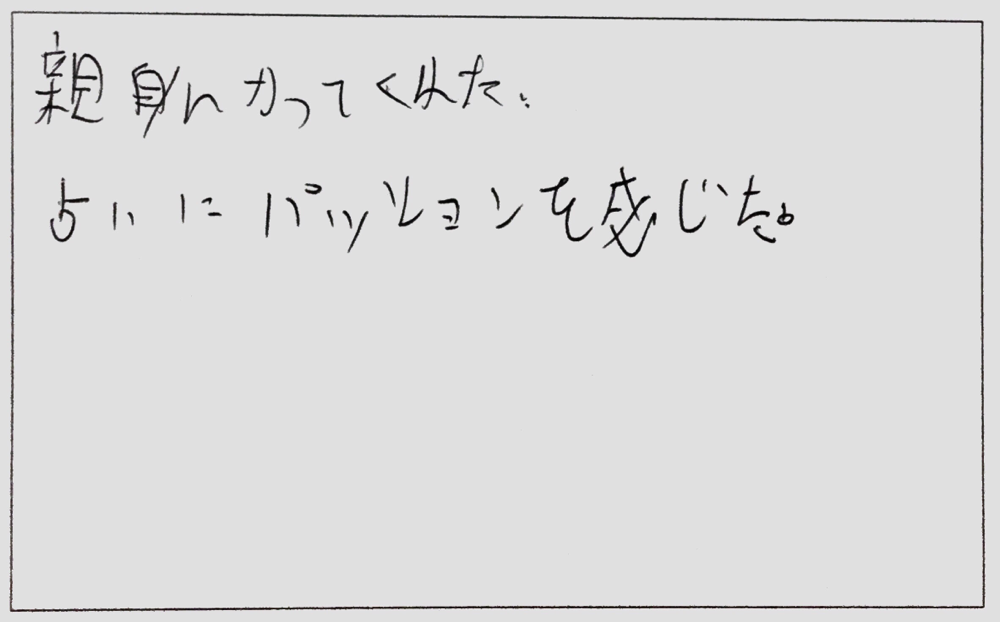 親身になってくれた。
占いにパッションを感じた。